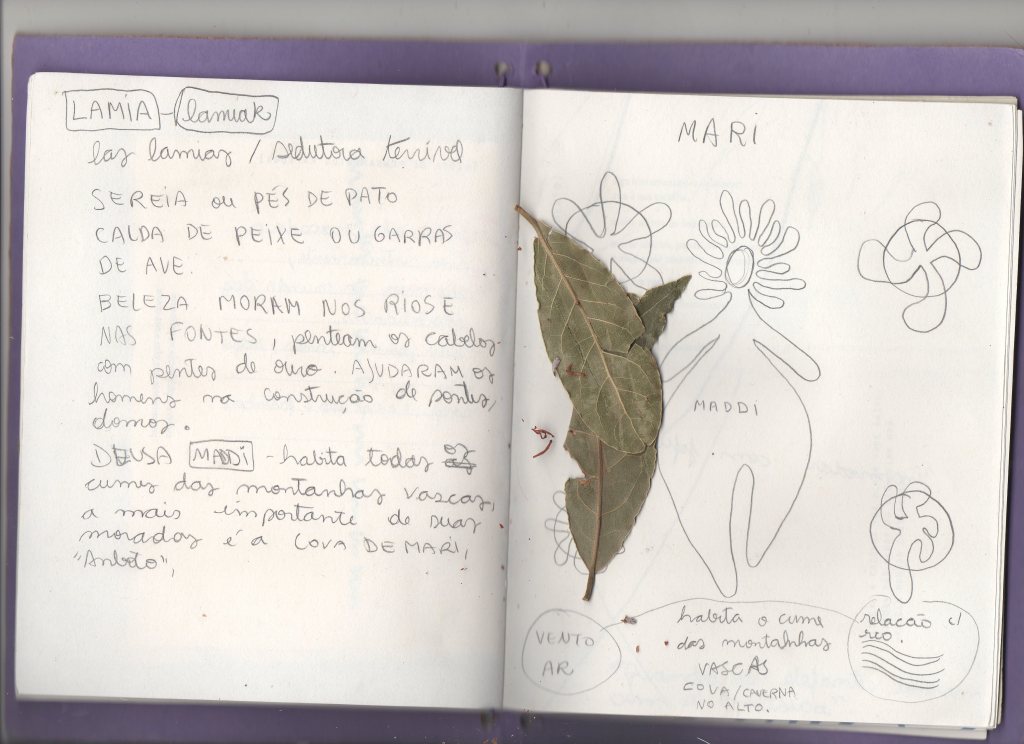 LAMIA - lamiak
las lamias / sedutora terrível
SEREIA ou PÉS DE PATO
CALDA DE PEIXE OU GARRAS
DE AVE.
BELEZA MORAM NOS RIOS E
NAS FONTES, penteam os cabelos
com pentes de ouro. AJUDARAM os
homens na construção de pontes,
domos.
DEUSA MADDI - habita todas os
cumes das montanhas vascas,
a mais importante de suas
moradas é a COVA DE MARI,
"Anboto",
MARI
MADDI
VENTO
AR
habita o cume
das montalhas
VASCAS
COVA/CAVERNA
NO ALTO.
relacão c/
rio.